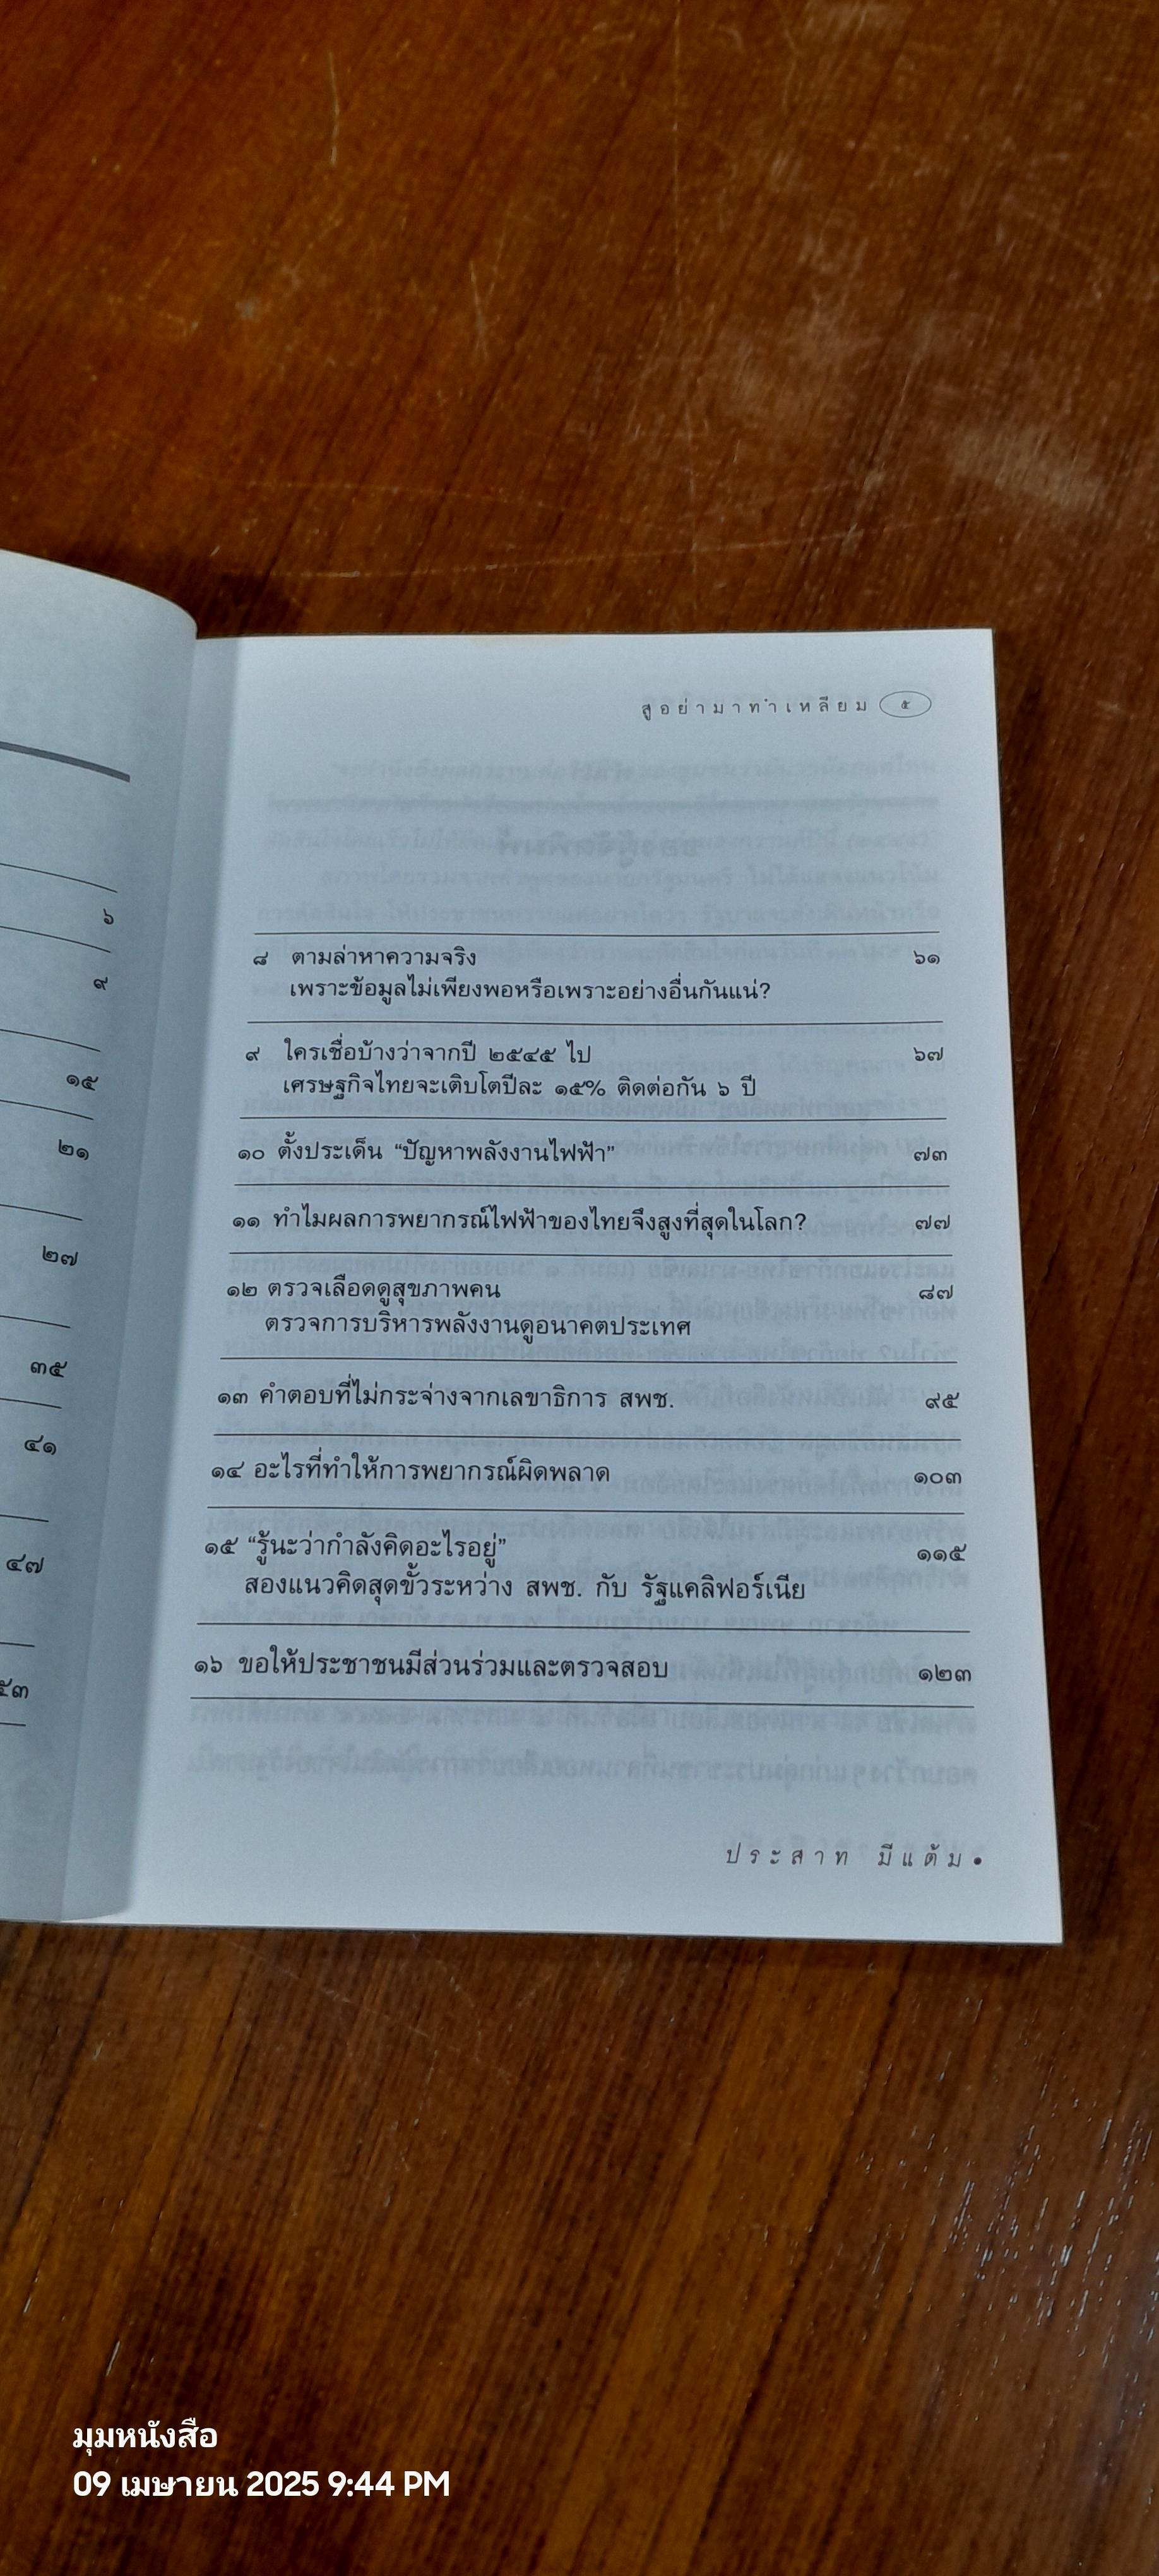 ๖
๙
๑๕
๒๑
๒๗
๓๕
๔๑
๔๗
๕๓
สูอย่ามาทำเหลียม ๕
๘ ตามล่าหาความจริง ๖๑
เพราะข้อมูลไม่เพียงพอหรือเพราะอย่างอื่นกันแน่?
๙ ใครเชื่อบ้างว่าจากปี ๒๕๔๕ ไป ๖๗
เศรษฐกิจไทยจะเติบโตปีละ ๑๕% ติดต่อกัน ๖ ปี
๑๐ ตั้งประเด็น “ปัญหาพลังงานไฟฟ้า” ๗๓
๑๑ ทำไมผลการพยากรณ์ไฟฟ้าของไทยจึงสูงที่สุดในโลก? ๗๗
๑๒ ตรวจเลือดดูสุขภาพคน ๘๗
ตรวจการบริหารพลังงานดูอนาคตประเทศ
๑๓ คำตอบที่ไม่กระจ่างจากเลขาธิการ สพช. ๙๕
๑๔ อะไรที่ทำให้การพยากรณ์ผิดพลาด ๑๐๓
๑๕ “รู้นะว่ากำลังคิดอะไรอยู่” ๑๑๕
สองแนวคิดสุดขั้วระหว่าง สพช. กับ รัฐแคลิฟอร์เนีย
๑๖ ขอให้ประชาชนมีส่วนร่วมและตรวจสอบ ๑๒๓
ประสาท มีแต้ม •
มุมหนังสือ
09 เมษายน 2025 9:44 PM